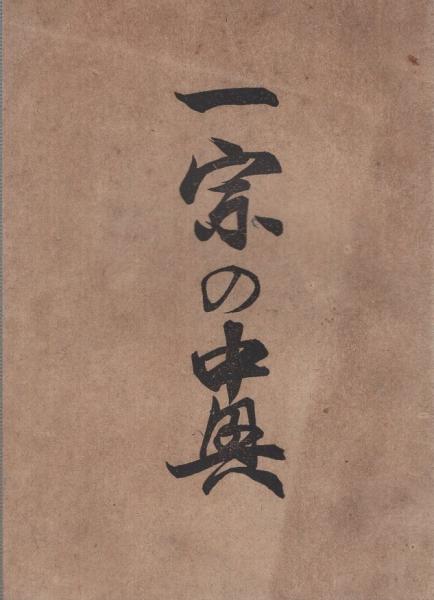 一宗の中興